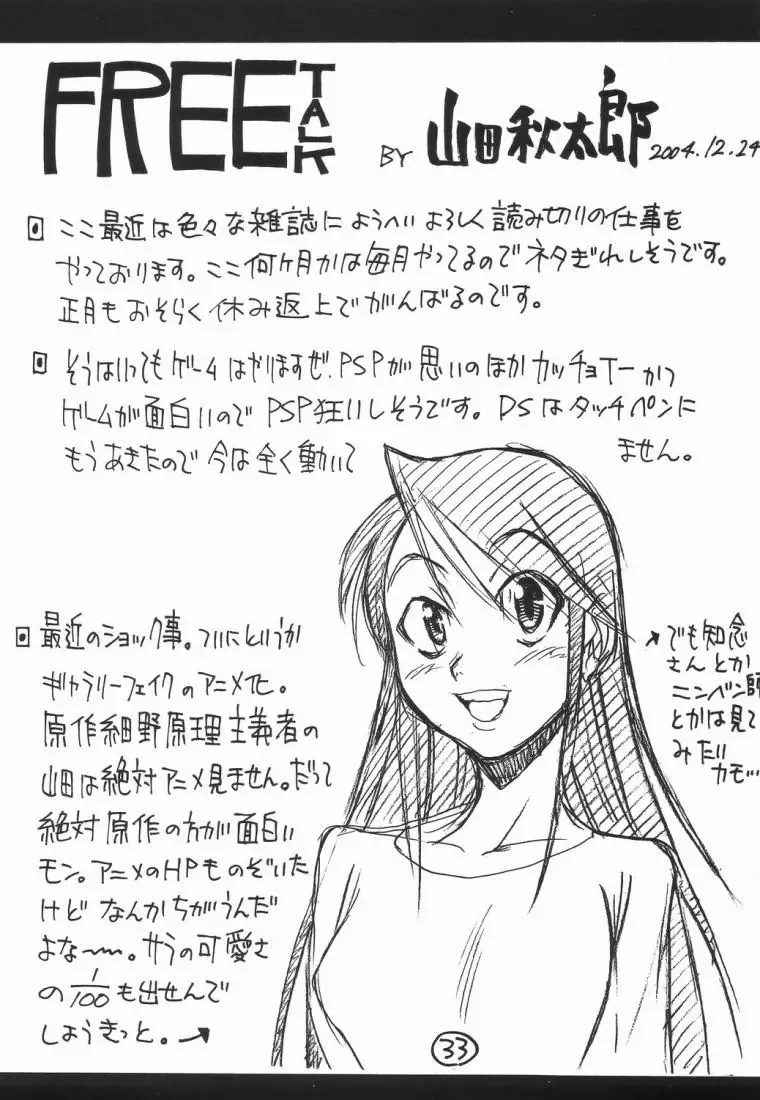 FREE TALK
BY 山田秋太郎 2004.12.24
ここ最近は色々な雑誌にようへいよろしく読み切りの仕事を
やっております。ここ何ヶ月かは毎月やってるのでネタぎれしそうです。
正月もおそらく休み返上でがんばるのです。
そうはいってもゲームはやりますぜ、PSPが思いのほかカッチョイーかつ
ゲームが面白いのでPSP狂いしそうです。DSはタッチペンに
もうあきたので今は全く動いて ません。
最近のショック事。ついにというか
ギャラリーフェイクのアニメ化。
原作細野原理主義者の
山田は絶対アニメ見ません。だって
絶対原作の方が面白い
モン。アニメのHPものぞいた
けどなんかちがうんだ
よな〜〜。サラの可愛さ
の1/100も出せんで
しょうきっと。→
→でも知念
さんとか
ニンベン師
とかは見て
みたい
カモ…
33